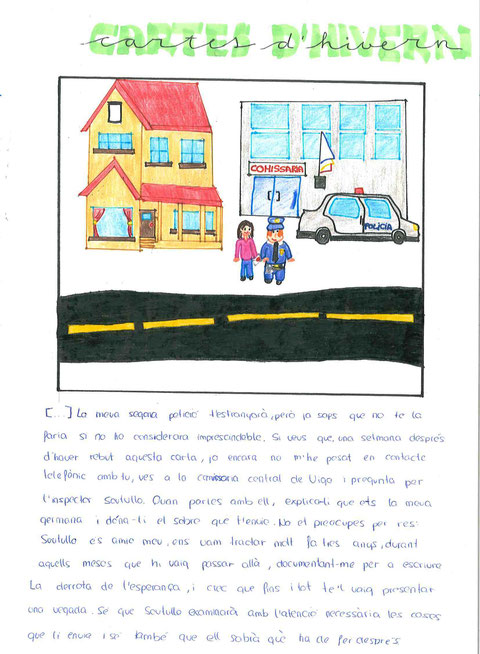 CARTES D'HIVERN
cartes d'hivern
COMISSARIA
POLICIA
[...] La meva segona petició t'estranyarà, però ja saps que no te la
faria si no ho considerara imprescindible. Si veus que, una setmana després
d'haver rebut aquesta carta, jo encara no m'he posat en contacte
telefònic amb tu, ves a la comissaria central de Vigo i pregunta per
l'inspector Soutullo. Quan parles amb ell, explica-li que ets la meva
germana i dóna-li el sobre que t'envie. No et preocupes per res:
Soutullo és amic meu, ens vam tractar molt fa tres anys, durant
aquells mesos que hi vaig passar allà, documentant-me per a escriure
La derrota de l'esperança, i crec que fins i tot te'l vaig presentar
una vegada. Sé que Soutullo examinarà amb l'atenció necessària les coses
que li envie i sé també que ell sabrà què ha de fer després